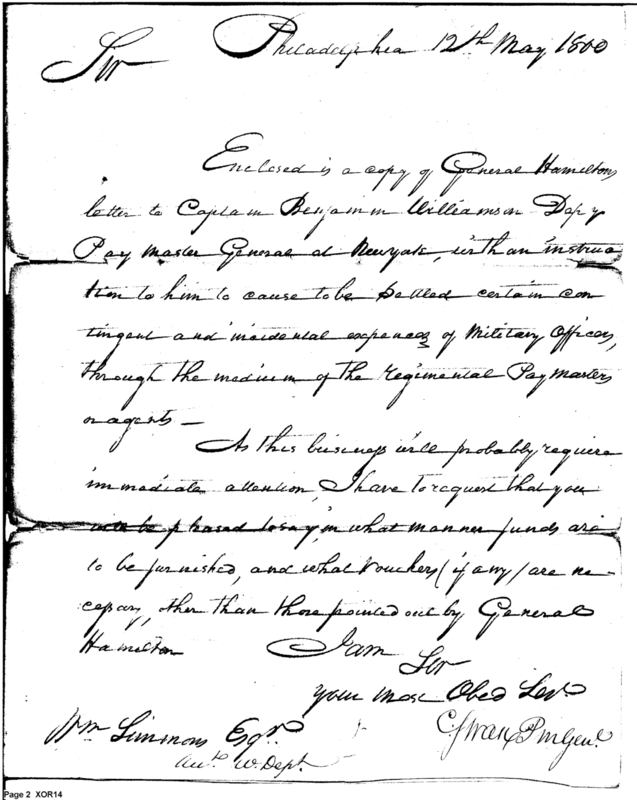 Philadelphia 12th May 1800
Sir
Enclosed is a copy of General Hamiltons
letter to Captain Benjamin Williamson Depy
Pay Master General at Newyork, with an instruc
tion to him to cause to be settled certain con
tingent and incidental expences of Military Officers,
through the medium of the regimental Pay Masters
or agents —
As this business will probably require
immediate attention, I have to request that you
will be pleased to say, in what manner funds are
to be furnished, and what Vouchers (if any) are ne-
cessary, other than those pointed out by General
Hamilton
I am
Sir
your most Obed Servt
C Swan PmGenl
Wm Simmons Esqr.
Acct. W. Dept.
Page 2 XOR14